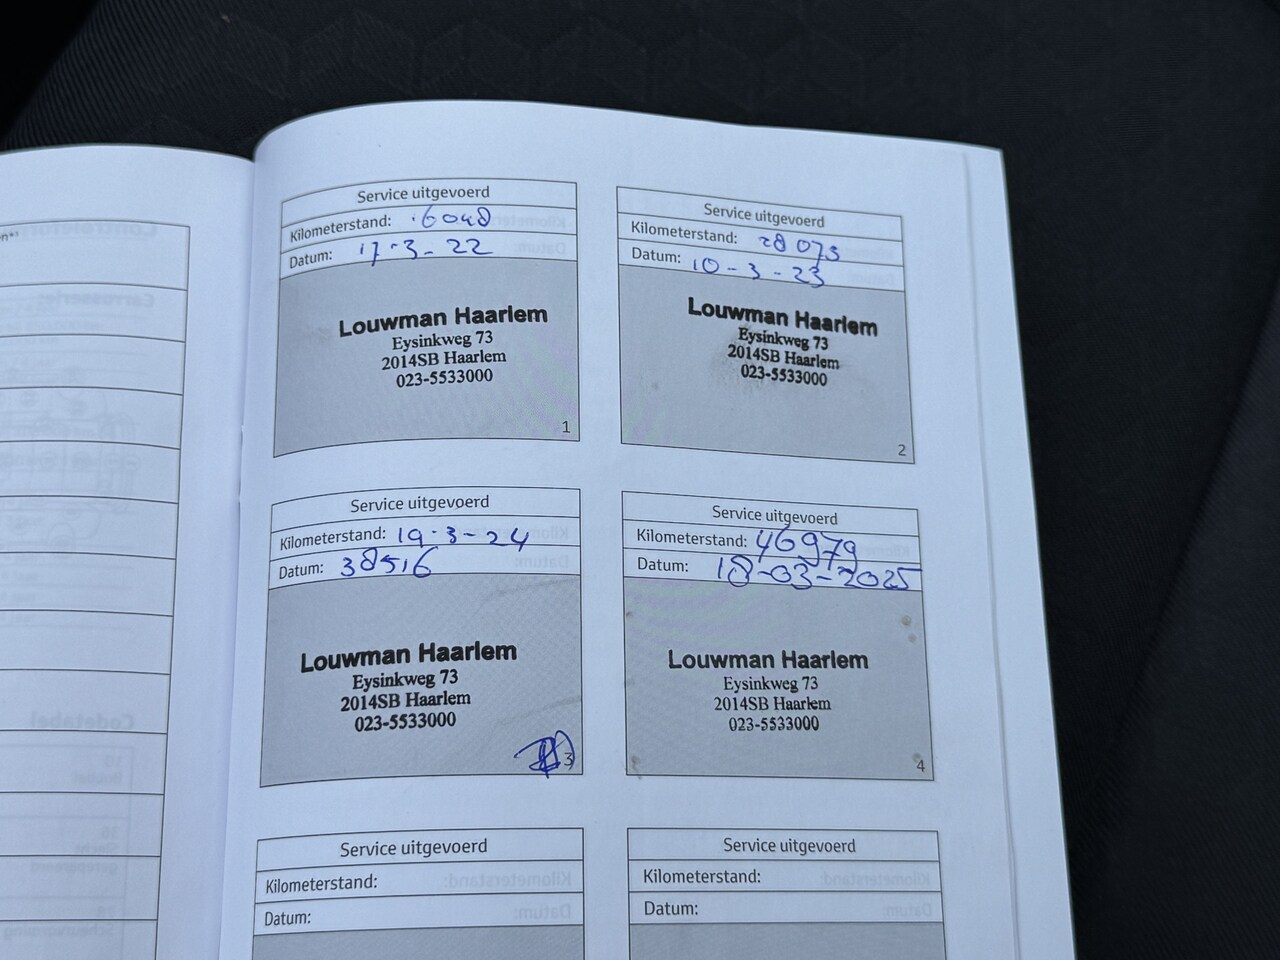 Service uitgevoerd
Kilometerstand: 16048
Datum: 17-3-22
Louwman Haarlem
Eysinkweg 73
2014SB Haarlem
023-5533000
1
Service uitgevoerd
Kilometerstand: 28 075
Datum: 10-3-23
Louwman Haarlem
Eysinkweg 73
2014SB Haarlem
023-5533000
2
Service uitgevoerd
Kilometerstand: 19-3-24
Datum: 38516
Louwman Haarlem
Eysinkweg 73
2014SB Haarlem
023-5533000
3
Service uitgevoerd
Kilometerstand: 46979
Datum: 18-03-2025
Louwman Haarlem
Eysinkweg 73
2014SB Haarlem
023-5533000
4
Service uitgevoerd
Kilometerstand:
Datum:
Service uitgevoerd
Kilometerstand:
Datum: